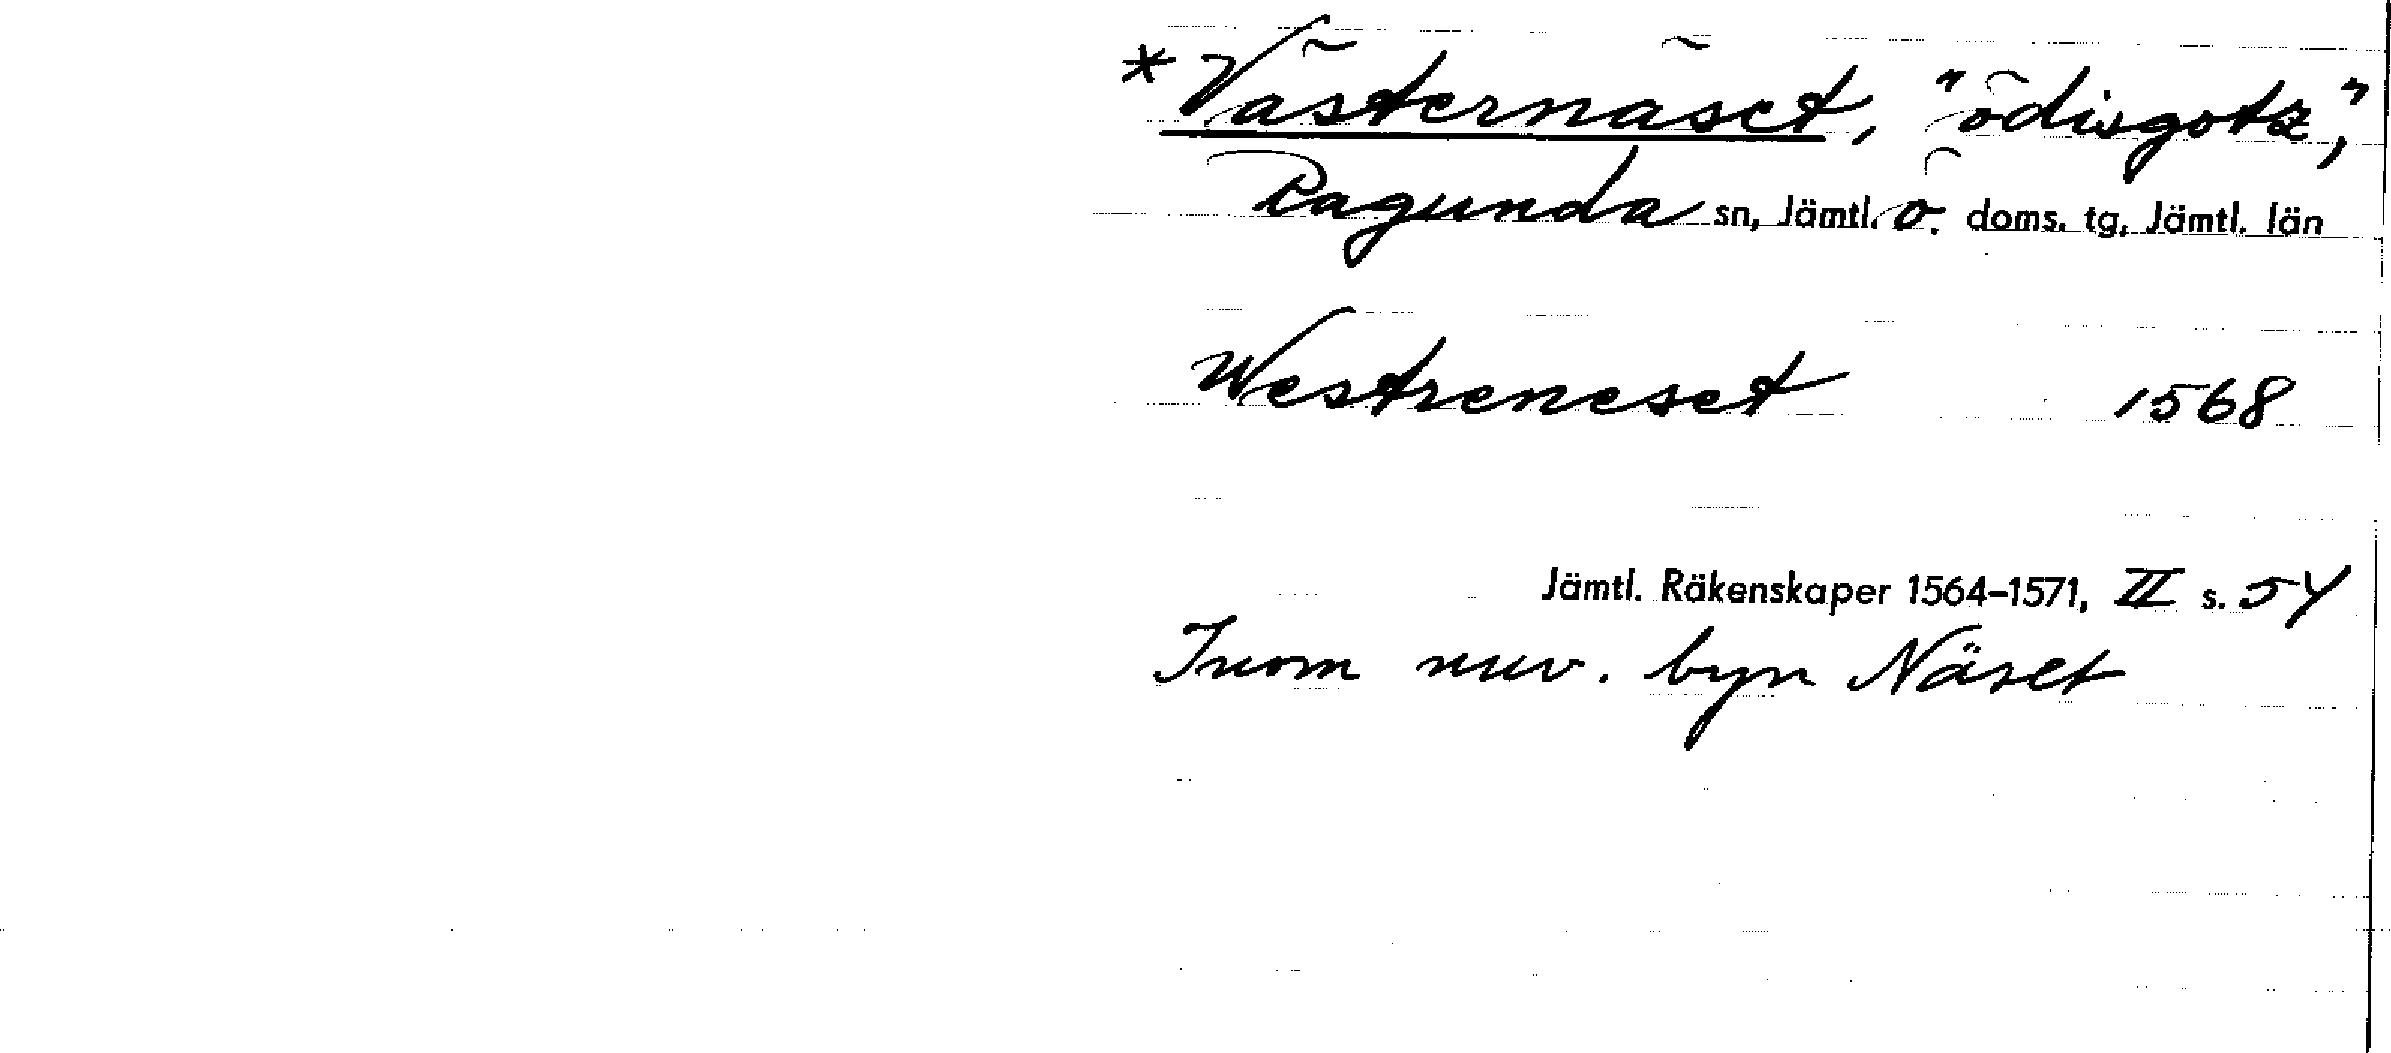 *Västernäset, "ödisgotz",
Ragunda sn, Jämtl. ö. doms. tg, Jämtl. län
Westreneset 1568
Jämtl. Räkenskaper 1564-1571, II s. 54
Inom nuv. byn Näset